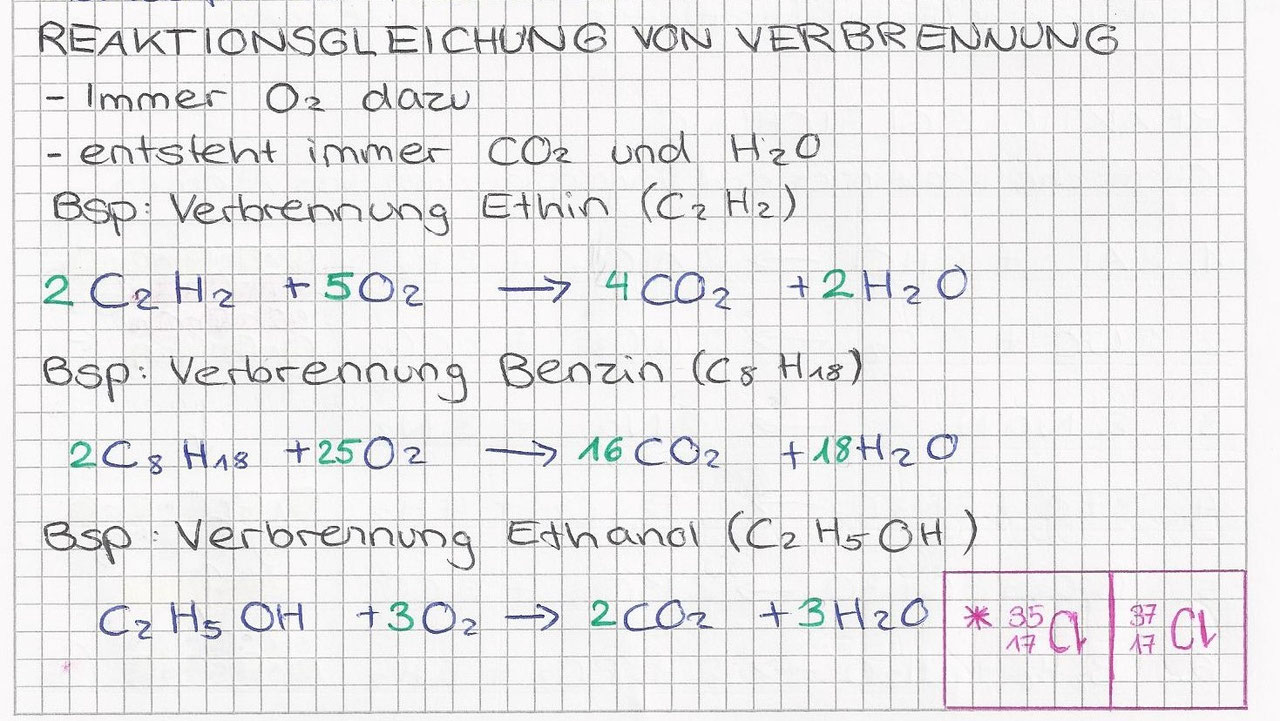 REAKTIONSGLEICHUNG VON VERBRENNUNG
- Immer O₂ dazu
- entsteht immer CO₂ und H₂O
Bsp: Verbrennung Ethin (C₂H₂)
2 C₂H₂ + 5O₂ → 4CO₂ + 2H₂O
Bsp: Verbrennung Benzin (C₈H₁₈)
2C₈H₁₈ + 25O₂ → 16CO₂ + 18H₂O
Bsp: Verbrennung Ethanol (C₂H₅OH)
C₂H₅OH + 3O₂ → 2CO₂ + 3H₂O
* ³⁵₁₇Cl ³⁷₁₇Cl